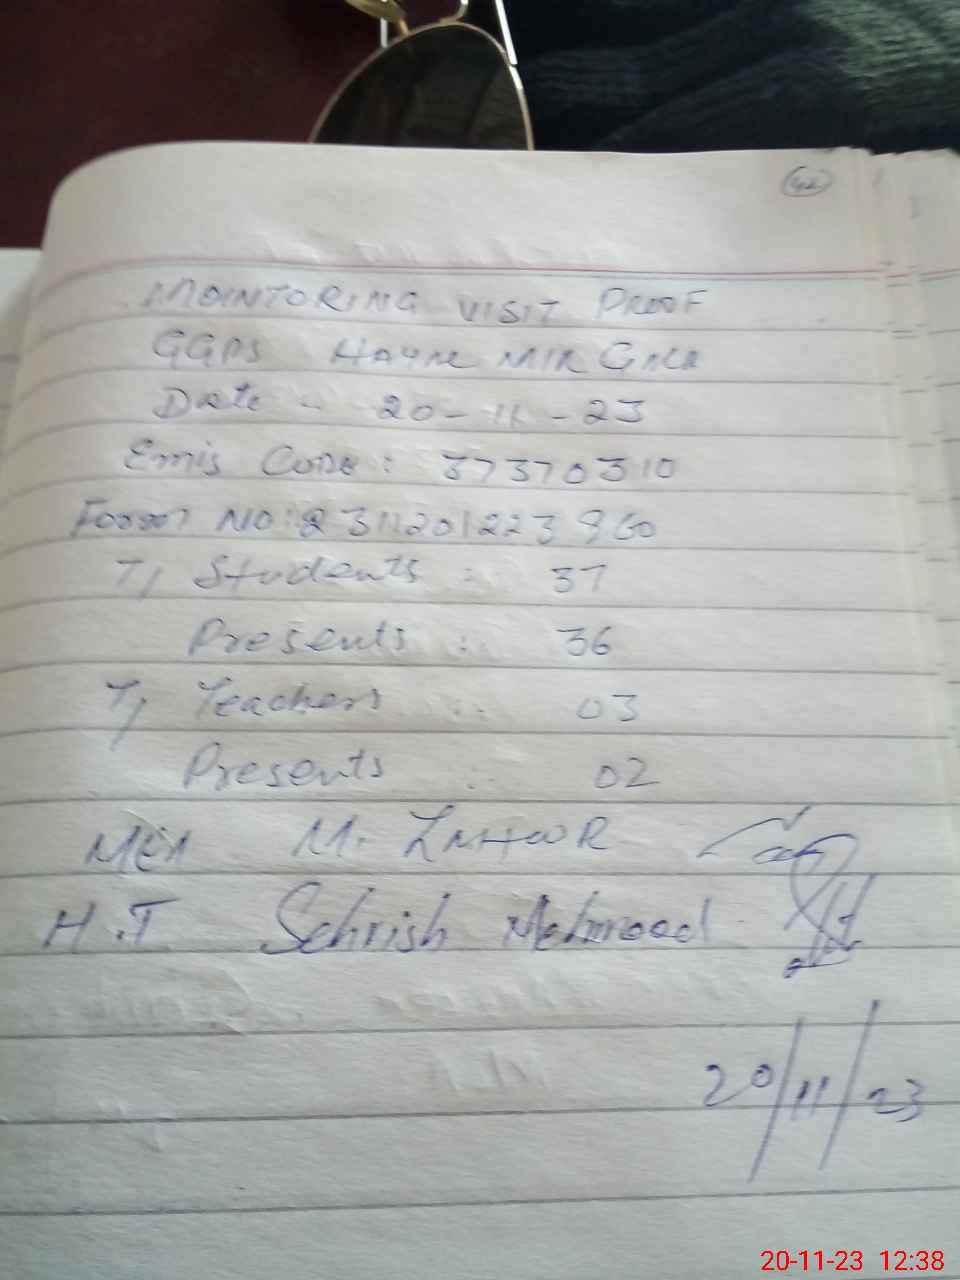 MOINTORING VISIT PROOF
GGPS HAYAL MIR
Date :- 20-11-23
Emis CODE: 37370310
Form NO: 2311201223960
T, Students : 37
Presents : 36
T, Teachers : 03
Presents : 02
MEA M.
H.T Sehrish Mehmood
20/11/23
20-11-23 12:38